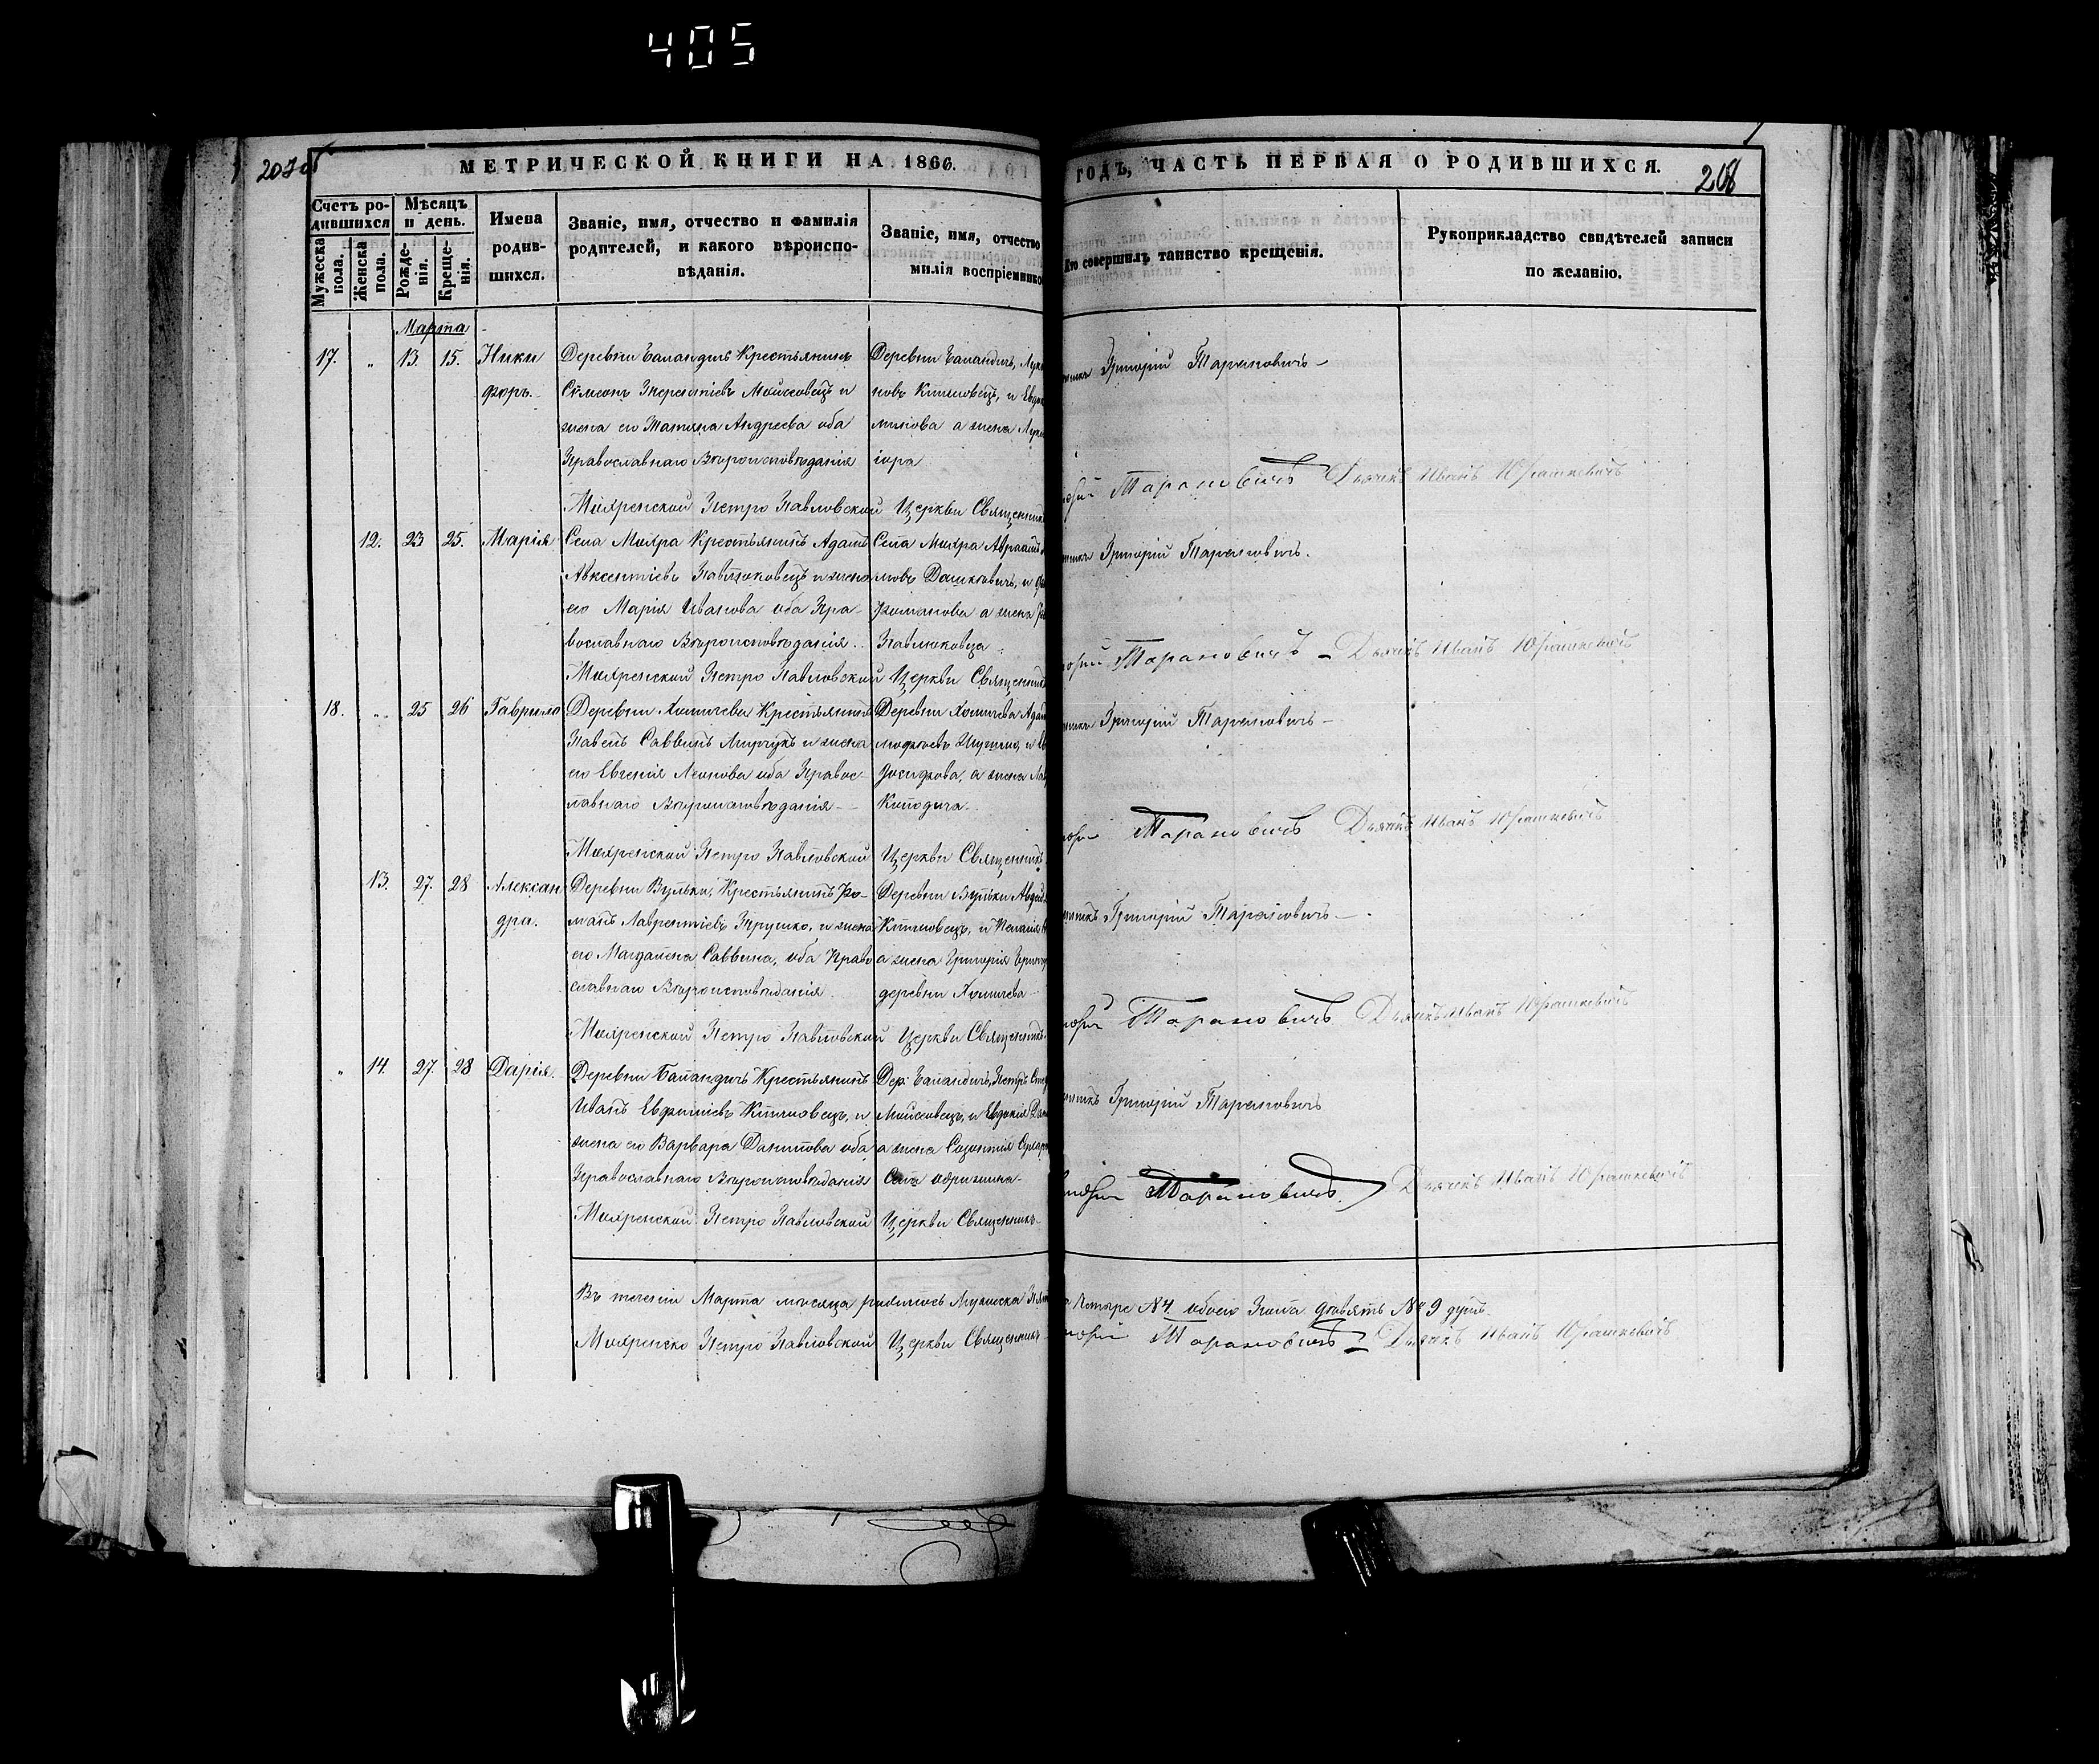 405
207об
МЕТРИЧЕСКОЙ КНИГИ НА 1866.
ГОДЪ, ЧАСТЬ ПЕРВАЯ О РОДИВШИХСЯ.
208
Счетъ ро-
дившихся
Мужеска пола.
Женска пола.
Мѣсяцъ
и день.
Рожде-
нія.
Креще-
нія.
Имена
родив-
шихся.
Званіе, имя, отчество и фамилія
родителей, и какого вѣроиспо-
вѣданія.
Званіе, имя, отчество
милія воспріемнико
Кто совершилъ таинство крещенія.
Рукоприкладство свидѣтелей записи
по желанію.
Марта
17. „ 13. 15. Ники
форъ.
Деревни Баландичъ Крестьянинъ
Сѵмеонъ Терентіевъ Мойсѣовецъ и
жена его Татіяна Андреева оба
Православнаго Вѣроисповѣданія
Деревни Баландичъ,
новъ Климовецъ, и
а жена
Григорій Тарановичъ
Мохренской Петро Павловской Церкви Священникъ
Тарановичъ Дьячекъ Иванъ Юрашкевичъ
12. 23 25. Марія
Села Мохра Крестьянинъ Адамъ
Авксентіевъ Павлюковецъ и жена
его Марія Иванова оба Пра-
вославнаго Вѣроисповѣданія.
Села Мохра Авраамъ
мовъ Дашкевичъ, и
Романова а жена
Павлюковца
Григорій Тарановичъ.
Мохренской Петро Павловской Церкви Священникъ
Тарановичъ Дьячекъ Иванъ Юрашкевичъ
18. „ 25 26 Гаврило
Деревни Хомичева Крестьянинъ
Павелъ Саввинъ и жена
его Евгенія Леонова оба Правос-
лавнаго Вѣроисповѣданія
Деревни Хомичева Адам
а жена
Григорій Тарановичъ
Мохренской Петро Павловской Церкви Священникъ
Тарановичъ Дьячекъ Иванъ Юрашкевичъ
13. 27. 28 Алексан
дра.
Деревни Вульки, Крестьянинъ Ро-
манъ Лаврентіевъ и жена
его Магдалена Саввина, оба Право
славнаго Вѣроисповѣданія
Деревни Вульки
Климовецъ, и Пелагія
а жена Григорія
деревни Хомичева
Григорій Тарановичъ
Мохренской Петро Павловской Церкви Священникъ
Тарановичъ Дьячекъ Иванъ Юрашкевичъ
„ 14. 27. 28 Дарія.
Деревни Баландичъ Крестьянинъ
Иванъ Евфиміевъ Климовецъ, и
жена его Варвара Данилова оба
Православнаго Вѣроисповѣданія
Дер. Баландичъ, Петръ
Мойсѣовецъ, и Евдокія
а жена Созонтія
Села
Григорій Тарановичъ
Мохренской Петро Павловской Церкви Священникъ
Тарановичъ. Дьячекъ Иванъ Юрашкевичъ
Въ теченіи Марта мѣсяца родилось Мужеска
Четыре №4. обоего Пола девять №9 душъ.
Мохренско Петро Павловской Церкви Священникъ
Тарановичъ Дьячекъ Иванъ Юрашкевичъ